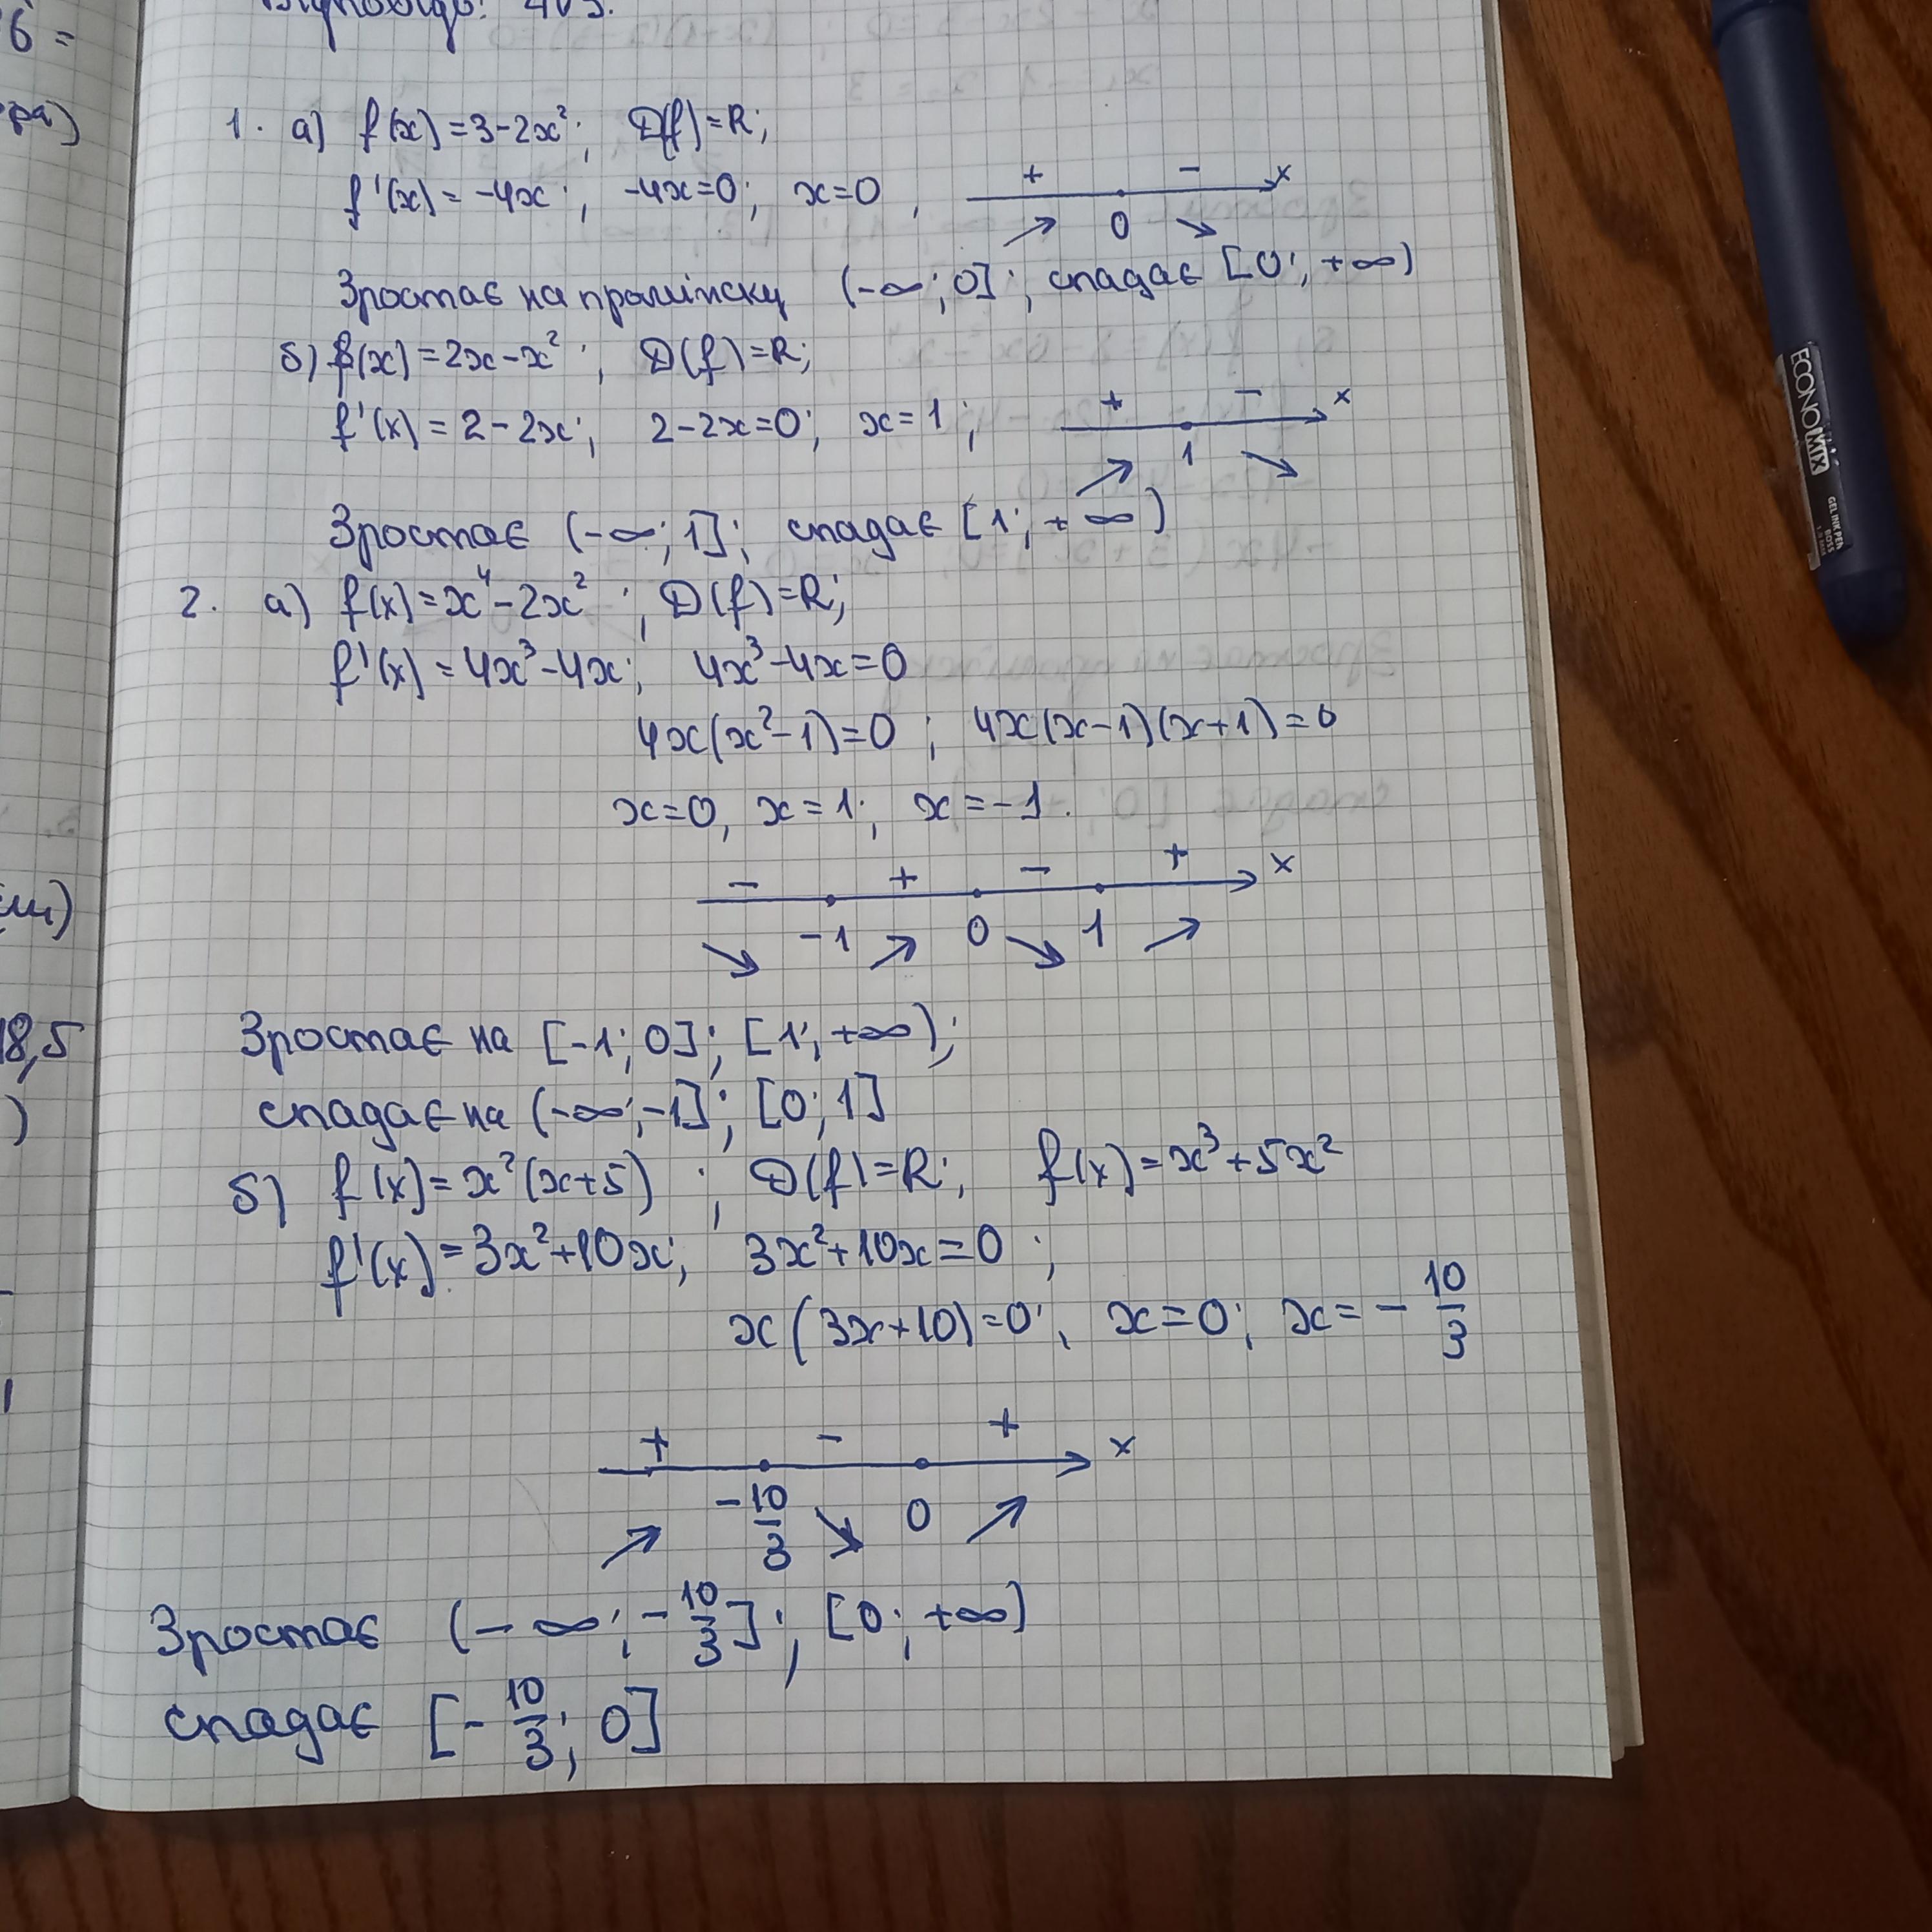 6 =
1. а) f(x) = 3-2x²; D(f)=R;
f'(x) = -4x; -4x=0; x=0,
+ - x
0
Зростає на проміжку (-∞; 0]; спадає [0; +∞)
б) f(x) = 2x-x²; D(f)=R;
f'(x) = 2-2x; 2-2x=0; x=1;
+ - x
1
Зростає (-∞; 1]; спадає [1; +∞)
2. а) f(x) = x⁴-2x²; D(f)=R;
f'(x) = 4x³-4x; 4x³-4x=0
4x(x²-1)=0; 4x(x-1)(x+1)=0
x=0, x=1; x=-1.
- + - + x
-1 0 1
18,5
Зростає на [-1; 0]; [1; +∞);
)
спадає на (-∞; -1]; [0; 1]
б) f(x) = x²(x+5); D(f)=R; f(x)=x³+5x²
f'(x) = 3x²+10x; 3x²+10x=0;
x(3x+10)=0; x=0; x=-10/3
+ - + x
-10/3 0
Зростає (-∞; -10/3]; [0; +∞)
спадає [-10/3; 0]
ECONOMIX
GEL INK PEN
BOSS